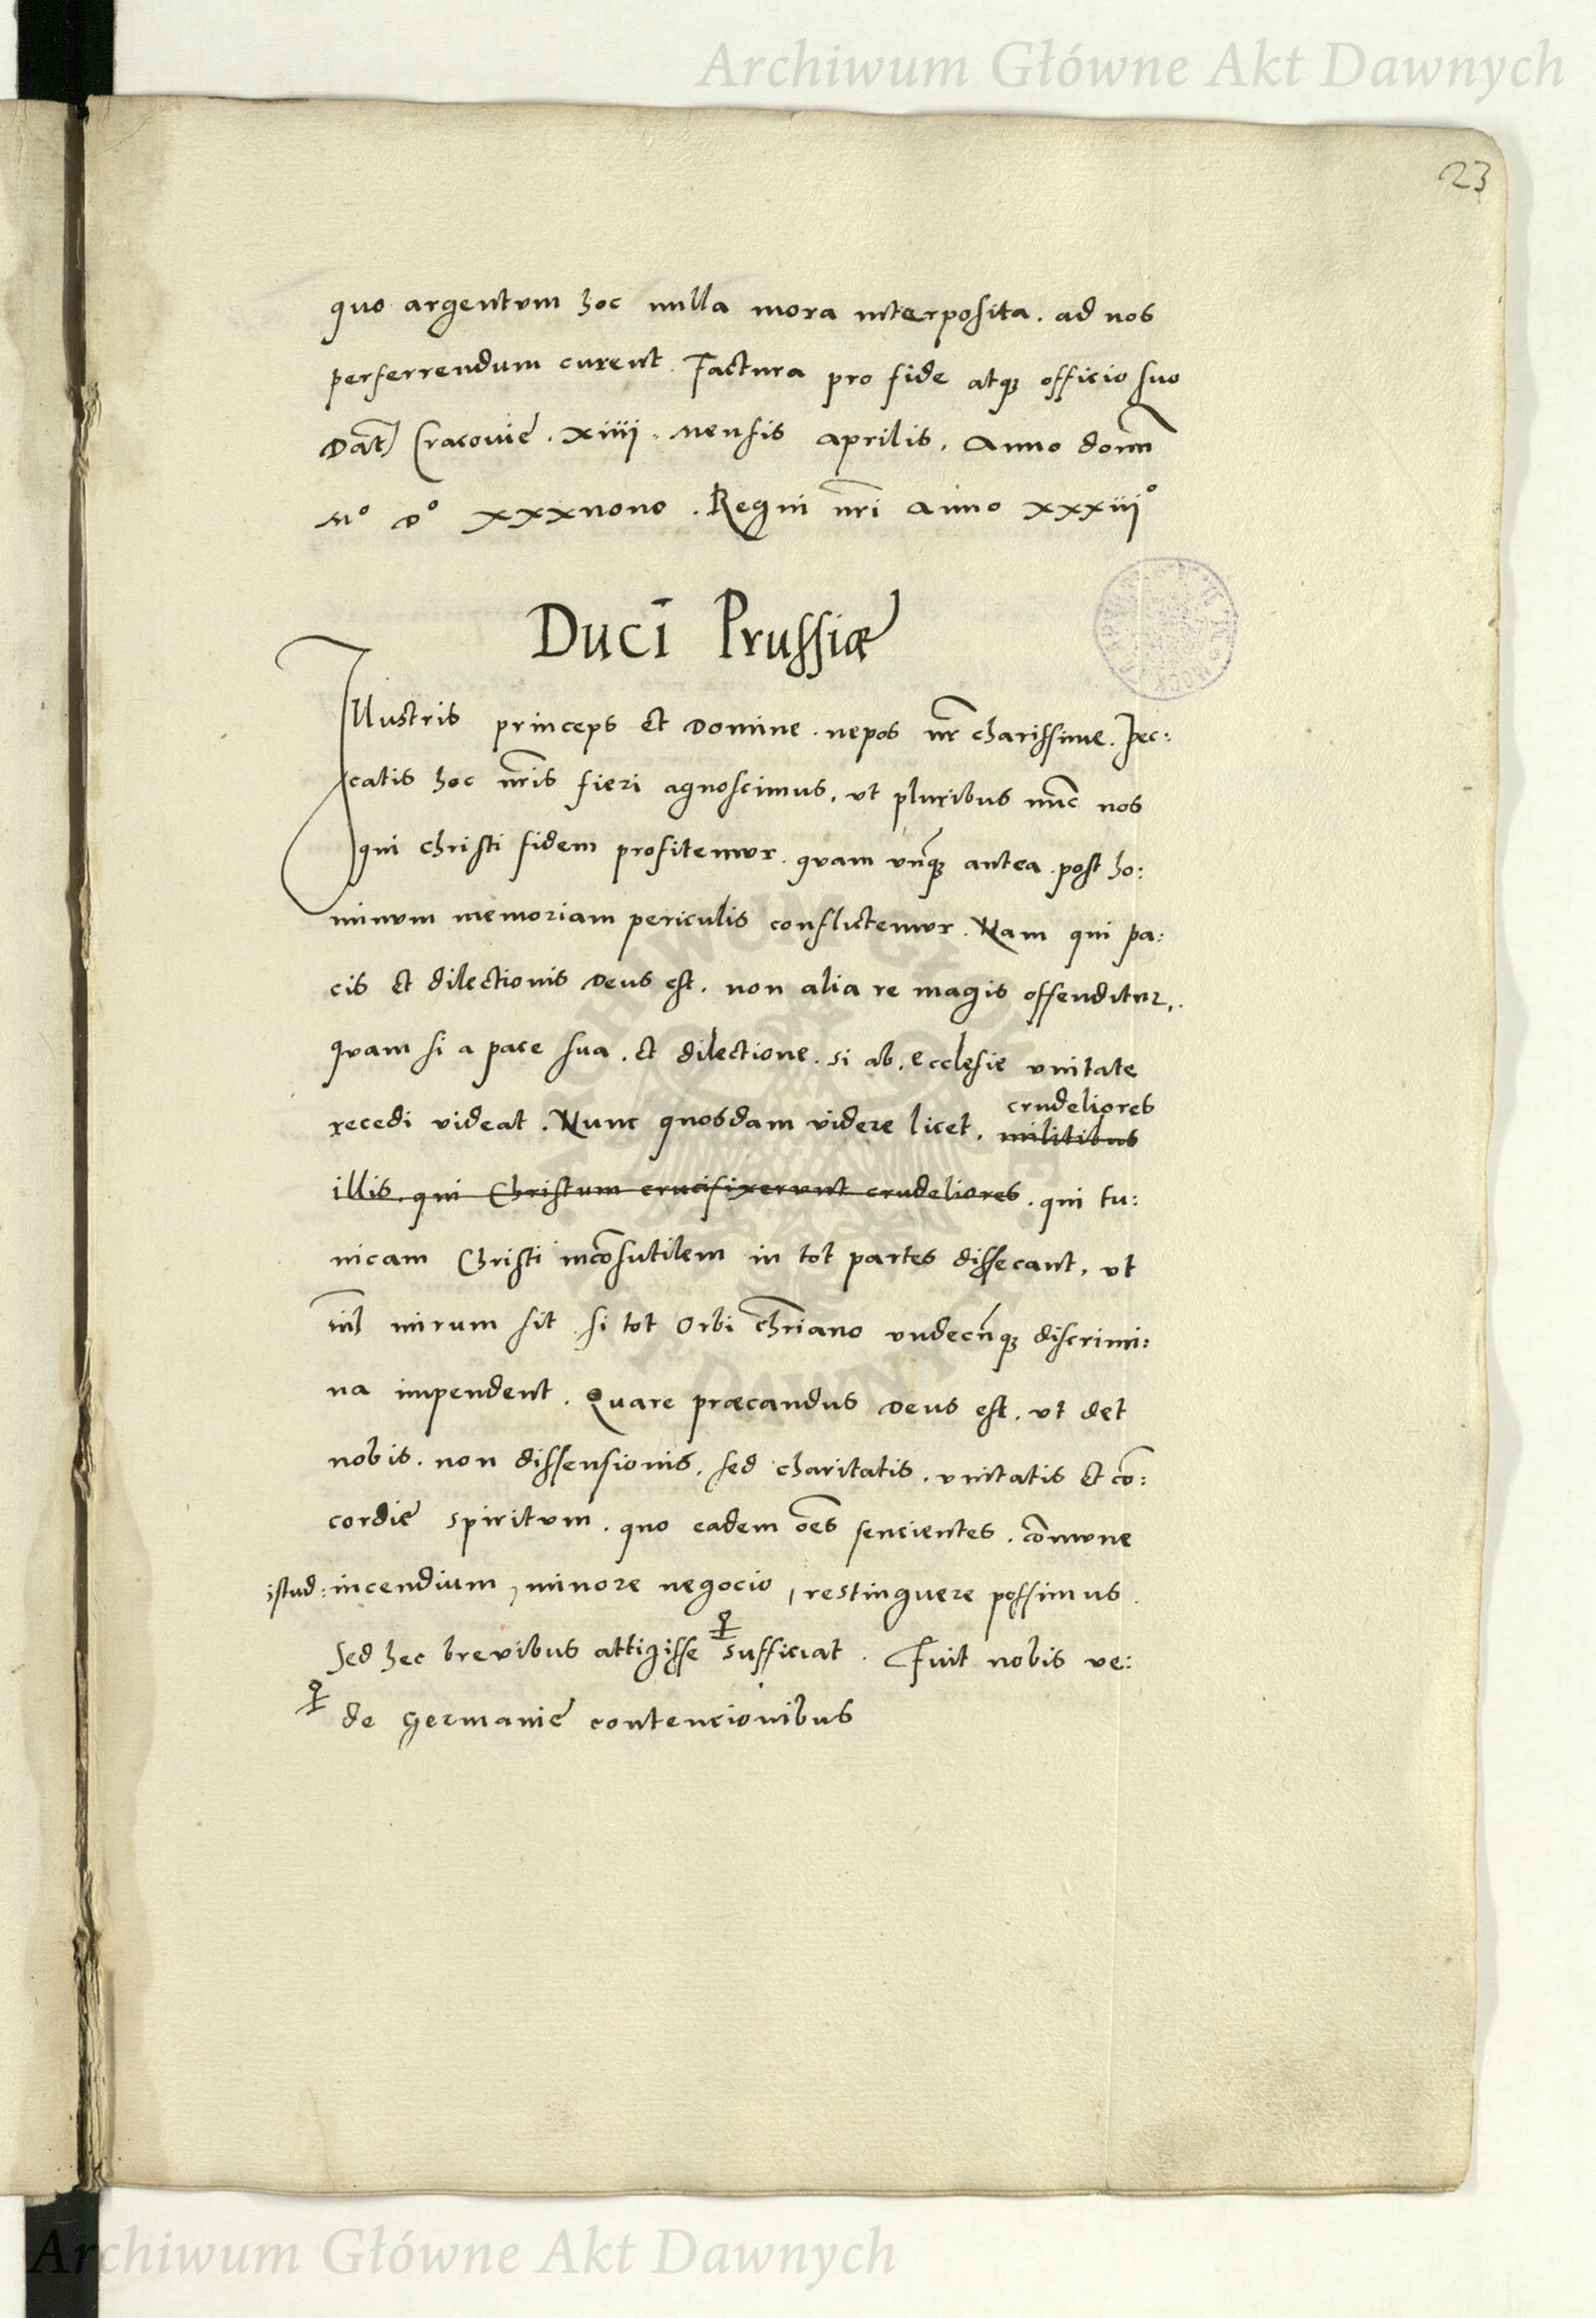 Archiwum Główne Akt Dawnych
23
quo argentum hoc nulla mora interposita. ad nos
perferrendum curent. Factura pro fide atq; officio suo
Dat̄ Cracouie. xiiij. mensis aprilis. Anno domī
Mº Dº xxxnono. Regni nr̄i Anno xxxiijº
Duci Prussiæ
Illustris princeps et Domine. nepos nr̄ charissime. Pec:
catis hoc nr̄is fieri agnoscimus, ut pluribus nūc nos
qui christi fidem profitemur. quam unq̄; antea. post ho:
minum memoriam periculis conflictemur. Nam qui pa:
cis et dilectionis Deus est. non alia re magis offenditur,.
quam si a pace sua. et dilectione. si ab. ecclesie unitate
crudeliores
recedi videat. Nunc quosdam videre licet, militibus
illis. qui Christum crucifixerunt crudeliores. qui tu:
nicam Christi incōsutilem in tot partes dissecant, ut
nil̄ mirum sit si tot Orbi chr̄iano undecūq; discrimi:
na impendent. Quare præcandus Deus est. ut det
nobis. non dissensionis, sed charitatis. unitatis et cō:
cordie spiritum. quo eadem oēs sencientes. cōmune
istud: incendium, minore negocio, restinguere possimus.
Sed hec brevibus attigisse sufficiat. Fuit nobis ve:
de Germanie contencionibus
Archiwum Główne Akt Dawnych